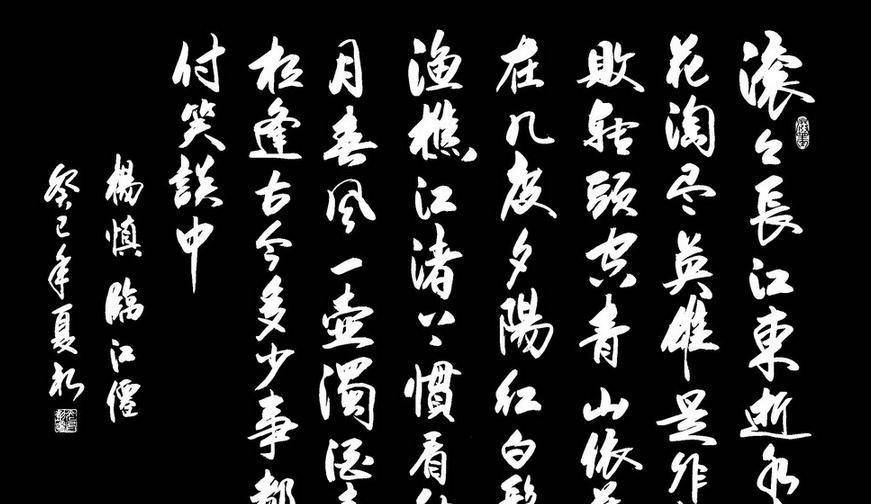 滚々長江東逝水
花淘尽英雄是非
敗转頭空青山依
在几度夕陽红白髮
渔樵江渚上慣看秋
月春风一壶濁酒
相逢古今多少事都
付笑談中
楊慎臨江僊
癸巳年夏